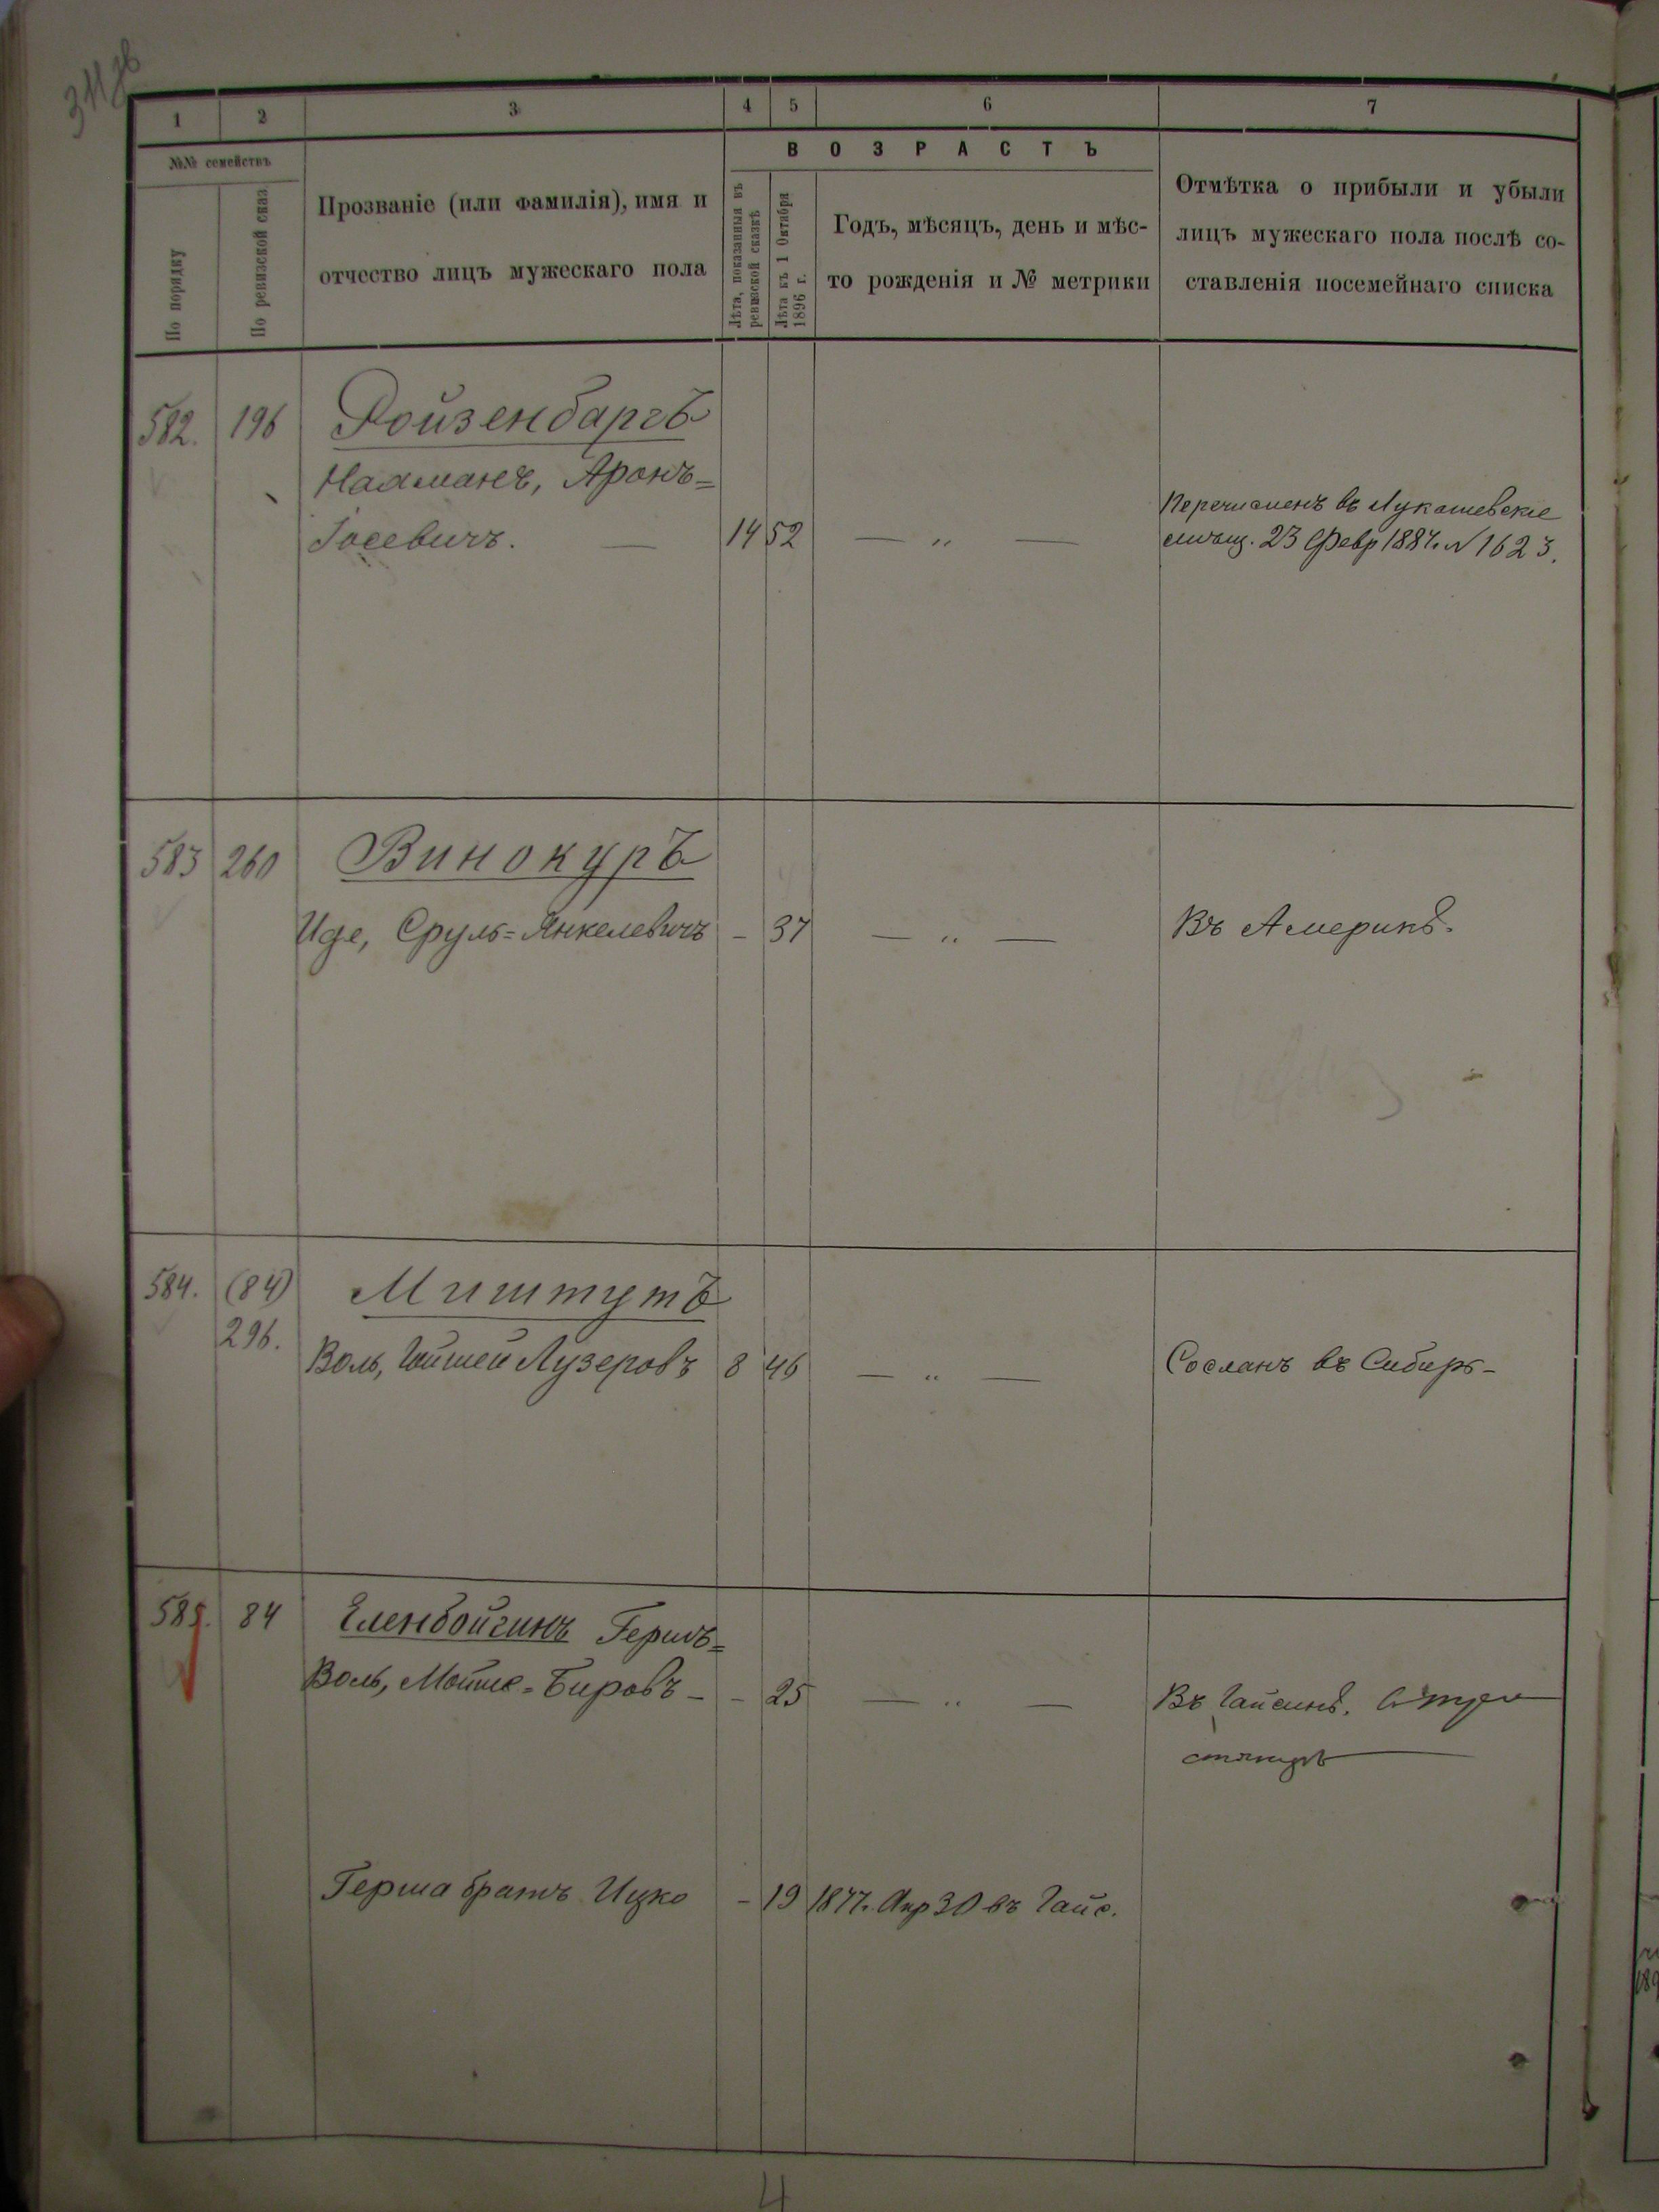 1 2 3 4 5 6 7
№№ семействъ
По порядку
По ревизской сказ
Прозваніе (или фамилія), имя и
отчество лицъ мужескаго пола
ВОЗРАСТЪ
Лѣта, показанныя въ
ревизской сказкѣ
Лѣта къ 1 Октября
1896 г.
Годъ, мѣсяцъ, день и мѣс-
то рожденія и № метрики
Отмѣтка о прибыли и убыли
лицъ мужескаго пола послѣ со-
ставленія посемейнаго списка
582. 196 Ройзенбаргъ
Нахманъ, Аронъ=
Іосевичъ. — 14 52 — „ —
Перечисленъ въ Лукашевскіе
мѣщ. 23 Февр 1887 г. № 1623.
583 260 Винокуръ
Иде, Сруль=Янкелевичъ - 37 — „ — Въ Америкѣ.
584. (84) Миштутъ
296.
Воль, Лузеровъ 8 46 — „ — Сосланъ въ Сибирь-
585. 84 Еленбойгинъ Гершъ=
Воль, Мошке=Бировъ - - 25 — „ — Въ Гайсинѣ.
Герша братъ Ицко - 19 1877 г. Апр 30 въ Гайс.
4